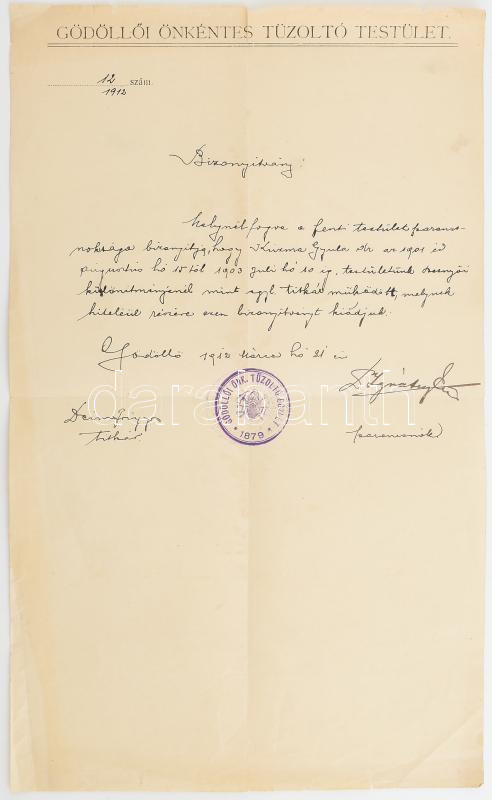 GÖDÖLLŐI ÖNKÉNTES TŰZOLTÓ TESTÜLET.
12 szám.
1912
Bizonyitvány.
Melynél fogva a fenti testület parancs-
noksága bizonyitja, hogy Kuzma Gyula úr az 1901 év
augusztus hó 15 től 1903 juli hó 10 ig, testületünk
különitményénél mint sgl. titkár működött, melynek
hiteléül részére ezen bizonyitványt kiadjuk.
Gödöllő 1912 Március hó 21 én
titkár
parancsnok
GÖDÖLLŐI ÖNK. TŰZOLTÓ EGYLET
* 1879 *
darabanth